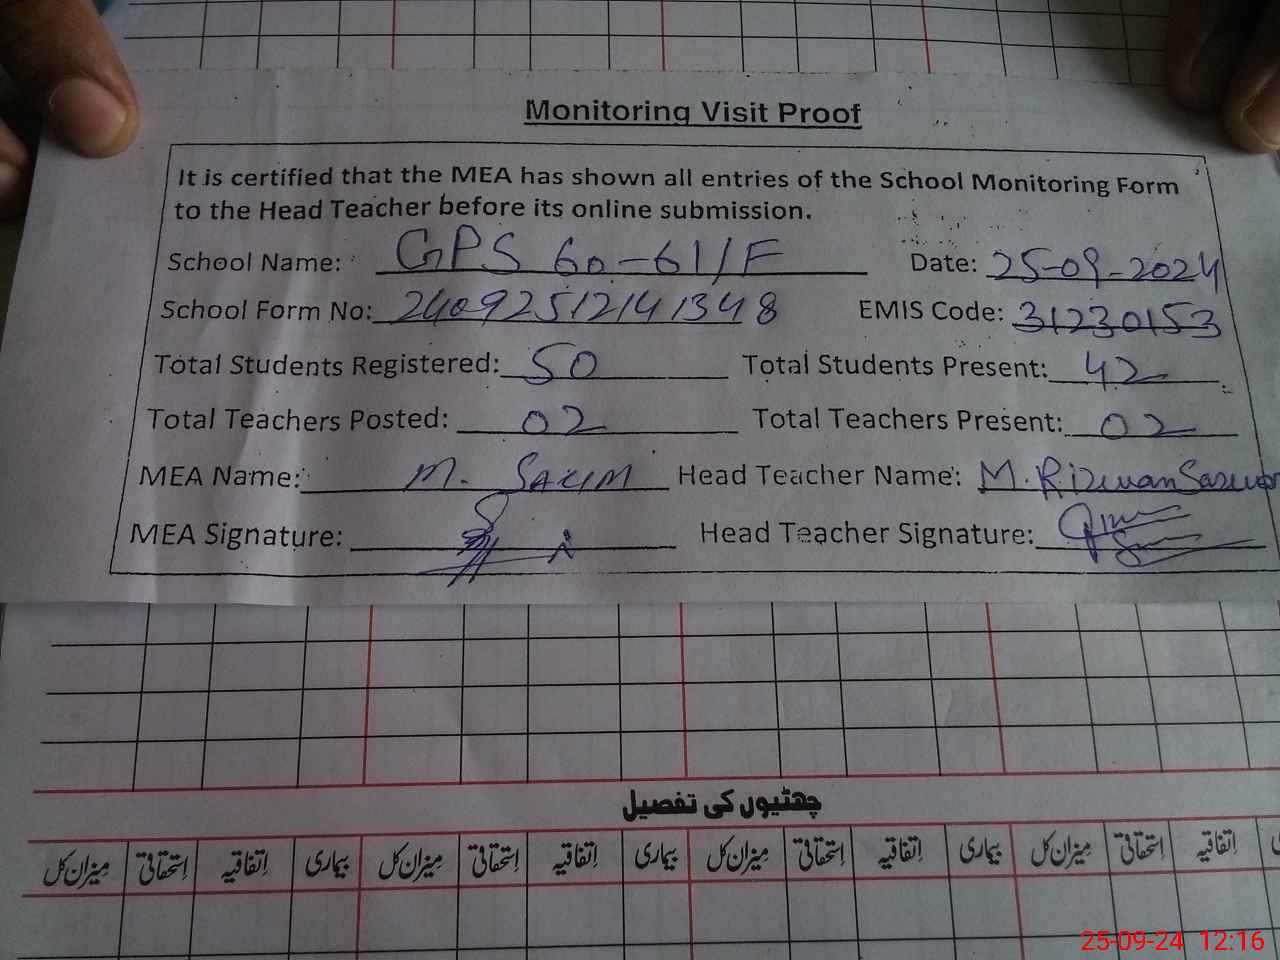 Monitoring Visit Proof
It is certified that the MEA has shown all entries of the School Monitoring Form
to the Head Teacher before its online submission.
School Name: GPS 60-61/F Date: 25-09-2024
School Form No: 24092512141348 EMIS Code: 31230153
Total Students Registered: 50 Total Students Present: 42
Total Teachers Posted: 02 Total Teachers Present: 02
MEA Name: M. SALIM Head Teacher Name: M. Rizwan Sarwar
MEA Signature: Head Teacher Signature:
چھٹیوں کی تفصیل
بیماری اتفاقیہ استحقاقی میزان کل بیماری اتفاقیہ استحقاقی میزان کل بیماری اتفاقیہ استحقاقی میزان کل
25-09-24 12:16